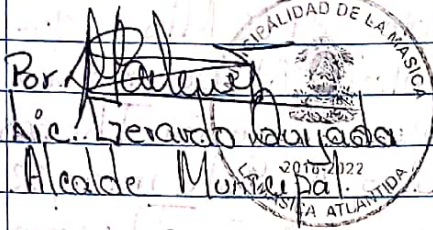 Por
Lic. Gerardo Quijada
Alcalde Municipal.
IPALIDAD DE LA MASICA
2018-2022
LA MASICA ATLANTIDA